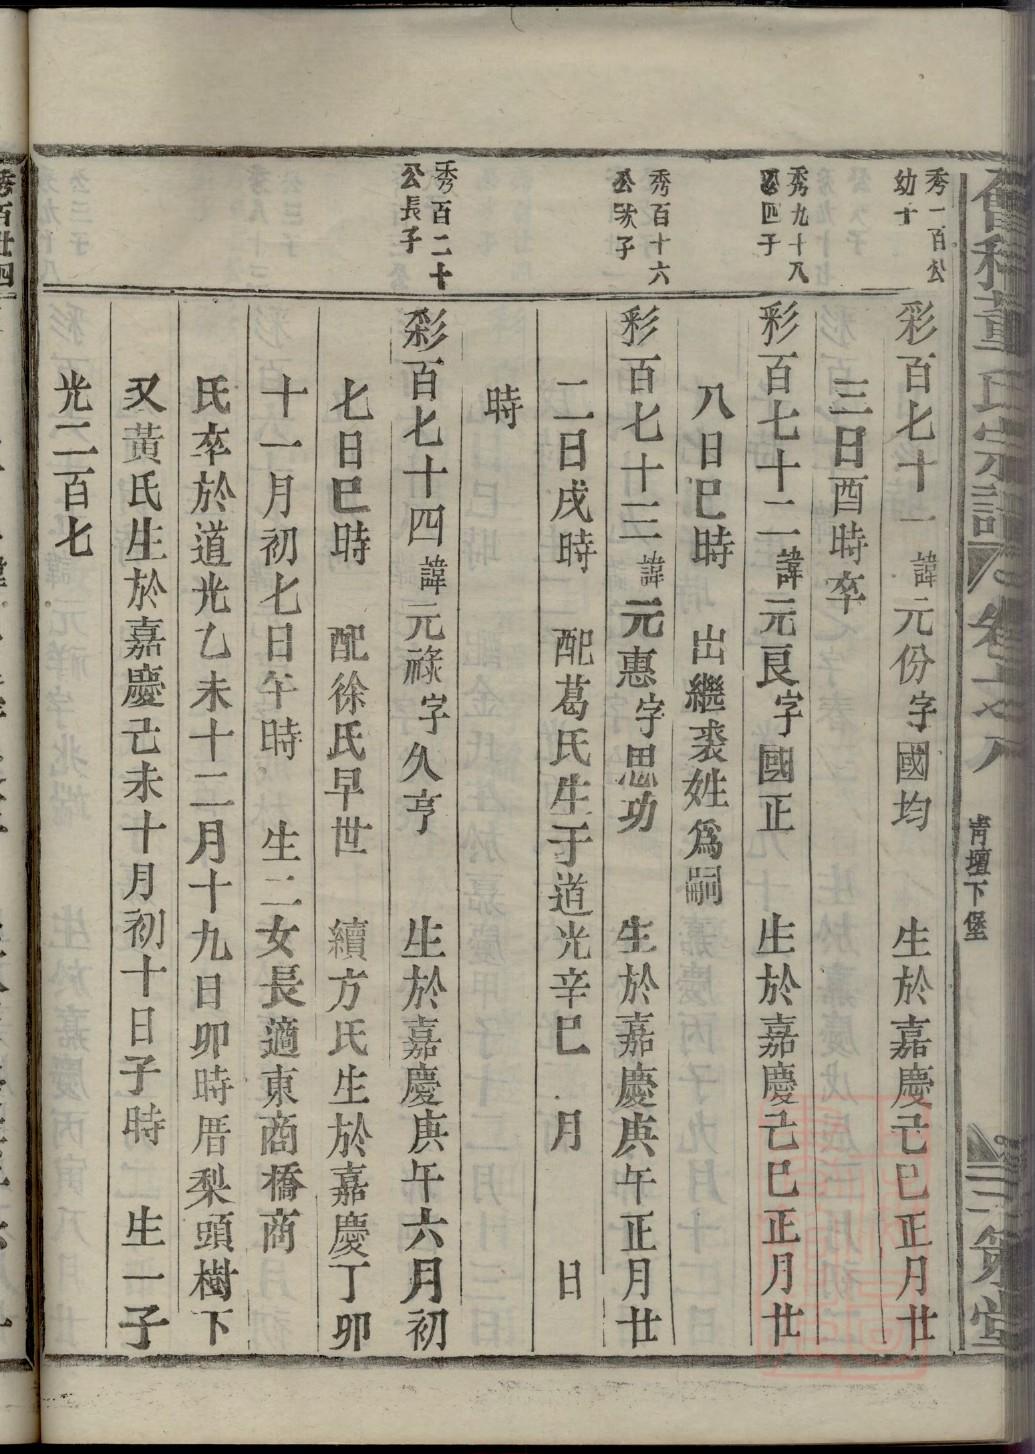 董氏宗譜 卷之八 青壇下堡 三策堂
秀一百公
幼子
彩百七十一諱元份字國均 生於嘉慶己巳正月廿
三日酉時卒
秀九十八
公四子
彩百七十二諱元良字國正 生於嘉慶己巳正月廿
八日巳時 出繼裘姓爲嗣
秀百十六
公次子
彩百七十三諱元惠字思功 生於嘉慶庚午正月廿
二日戌時 配葛氏生于道光辛巳 月 日
時
秀百二十
公長子
彩百七十四諱元祿字久亨 生於嘉慶庚午六月初
七日巳時 配徐氏早世 續方氏生於嘉慶丁卯
十一月初七日午時 生二女長適東商橋商
氏卒於道光乙未十二月十九日卯時厝梨頭樹下
又黃氏生於嘉慶己未十月初十日子時 生一子
光二百七
秀百廿四